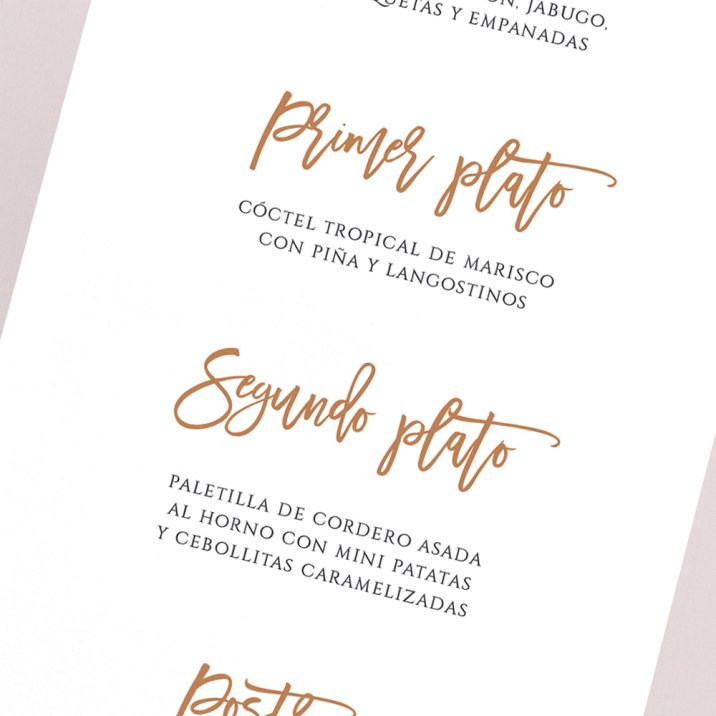 JABUGO,
Y EMPANADAS
Primer plato
CÓCTEL TROPICAL DE MARISCO
CON PIÑA Y LANGOSTINOS
Segundo plato
PALETILLA DE CORDERO ASADA
AL HORNO CON MINI PATATAS
Y CEBOLLITAS CARAMELIZADAS